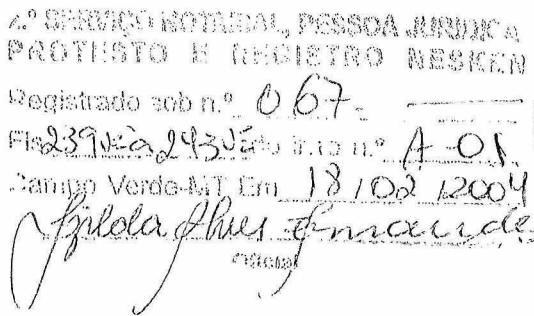 2.º SERVIÇO NOTARIAL, PESSOA JURIDICA
PROTESTO E REGISTRO NESKEN
Registrado sob n.º 067-
Fls 239vº a 243vº do livro n.º A-01
Campo Verde-MT Em 18/02/2004
Alves
Oficial